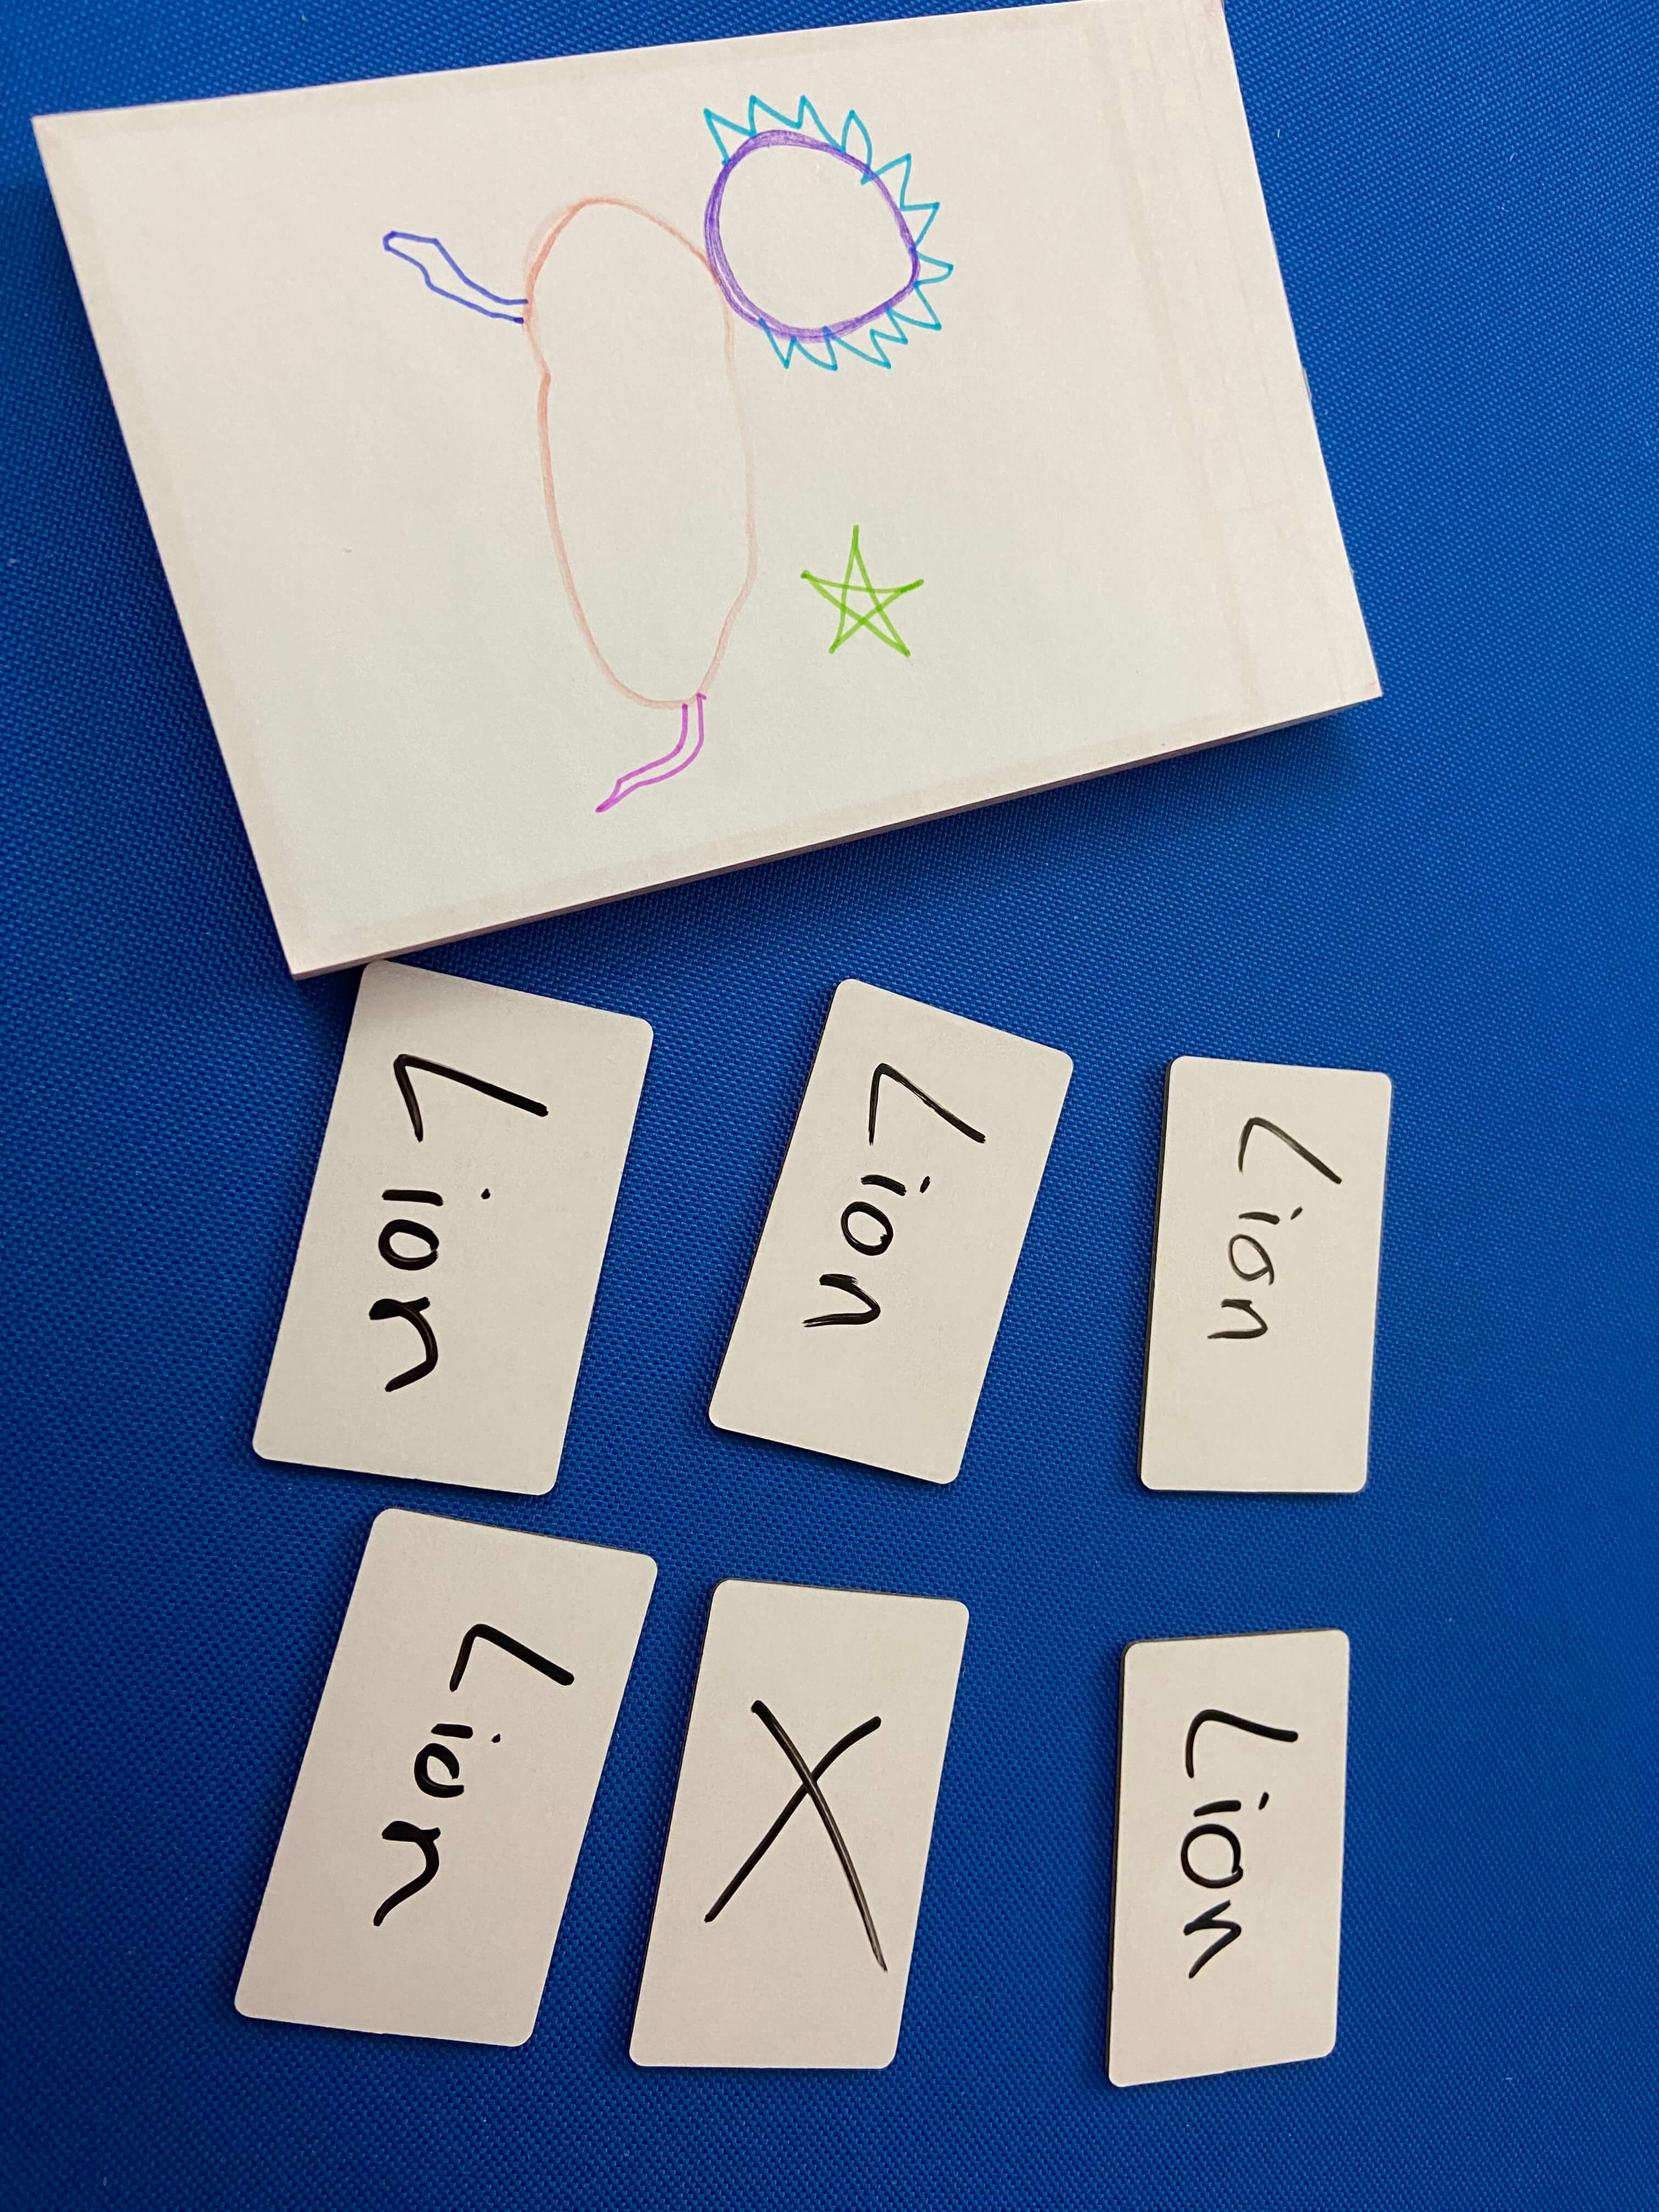 Lion
Lion
Lion
Lion
X
Lion